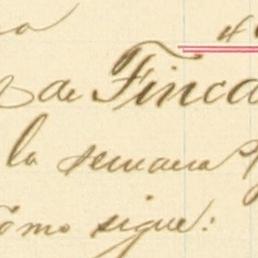 de Finca
la semana
como sigue: